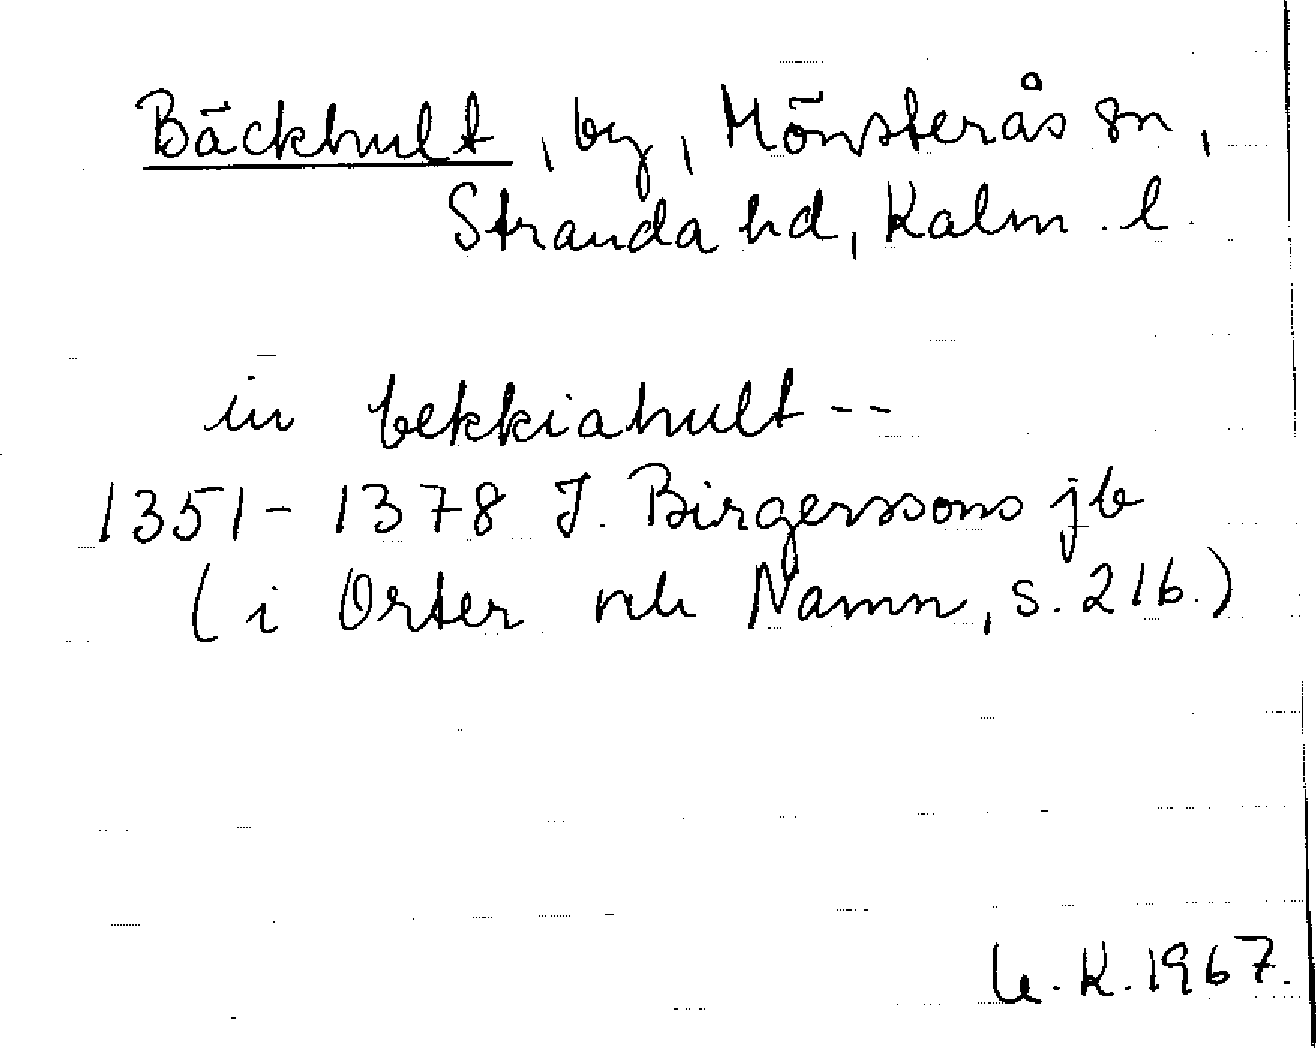 Bäckhult, by, Mönsterås sn,
Stranda hd, Kalm. l.
in bekkiahult --
1351-1378 J. Birgerssons jb
(i Orter och Namn, s. 216.)
U.K. 1967.